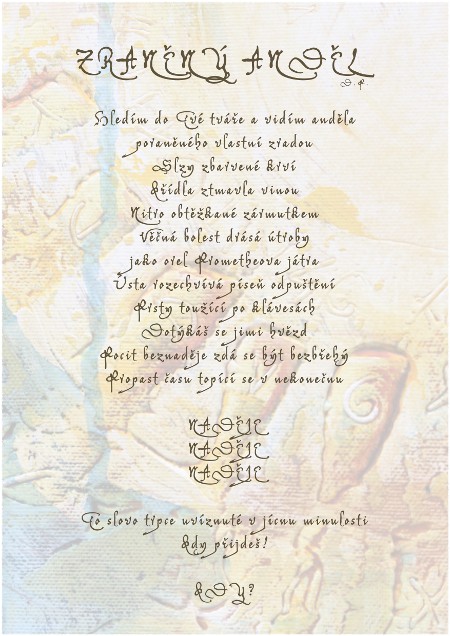 ZRANĚNÝ ANDĚL
D. P.
Hledím do Tvé tváře a vidím anděla
poraněného vlastní zradou
Slzy zbarvené krví
Křídla ztmavla vinou
Nitro obtěžkané zármutkem
Věčná bolest drásá útroby
jako orel Prometheova játra
Ústa rozechvívá píseň odpuštění
Prsty toužící po klávesách
Dotýkáš se jimi hvězd
Pocit beznaděje zdá se být bezbřehý
Propast času topící se v nekonečnu
NADĚJE
NADĚJE
NADĚJE
To slovo trpce uvíznuté v jícnu minulosti
Kdy přijdeš!
KDY?